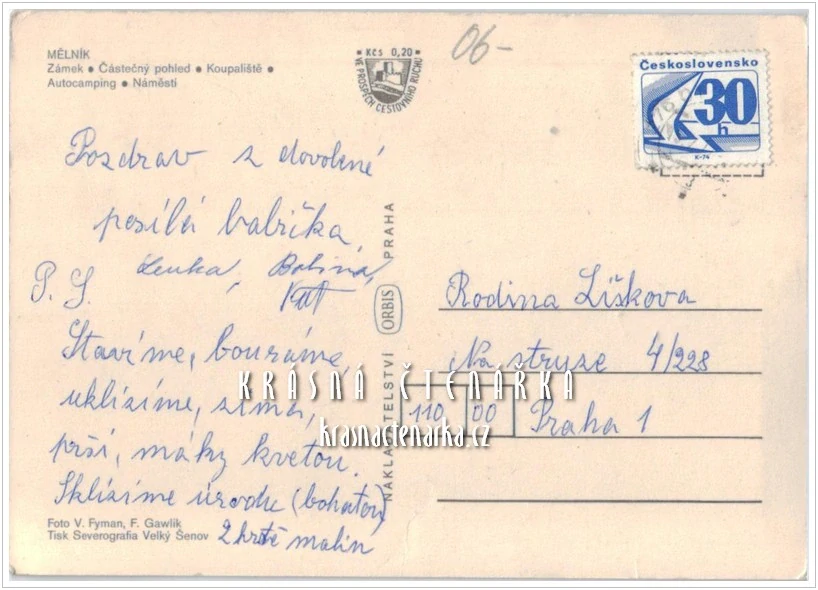 MĚLNÍK
Zámek ● Částečný pohled ● Koupaliště ●
Autocamping ● Náměstí
Kčs 0,20
VE PROSPĚCH CESTOVNÍHO RUCHU
06-
Československo
30
h
Pozdrav z dovolené
posílá babička,
Lenka,
P. S.
Stavíme, bouráme,
uklízíme, zima,
prší, máky kvetou.
Sklízíme úrodu (bohatou)
2 hrstě malin
Foto V. Fyman, F. Gawlik
Tisk Severografia Velký Šenov
NAKLADATELSTVÍ ORBIS PRAHA
Rodina Líškova
Na struze 4/228
110 00 Praha 1
KRÁSNÁ ČTENÁRKA
krasnactenarka.cz